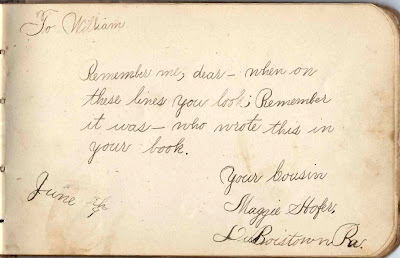 To William
Remember me, dear — when on
these lines you look; Remember
it was — who wrote this in
your book.
Your Cousin
Maggie Hofer.
June
DuBoistown Pa.